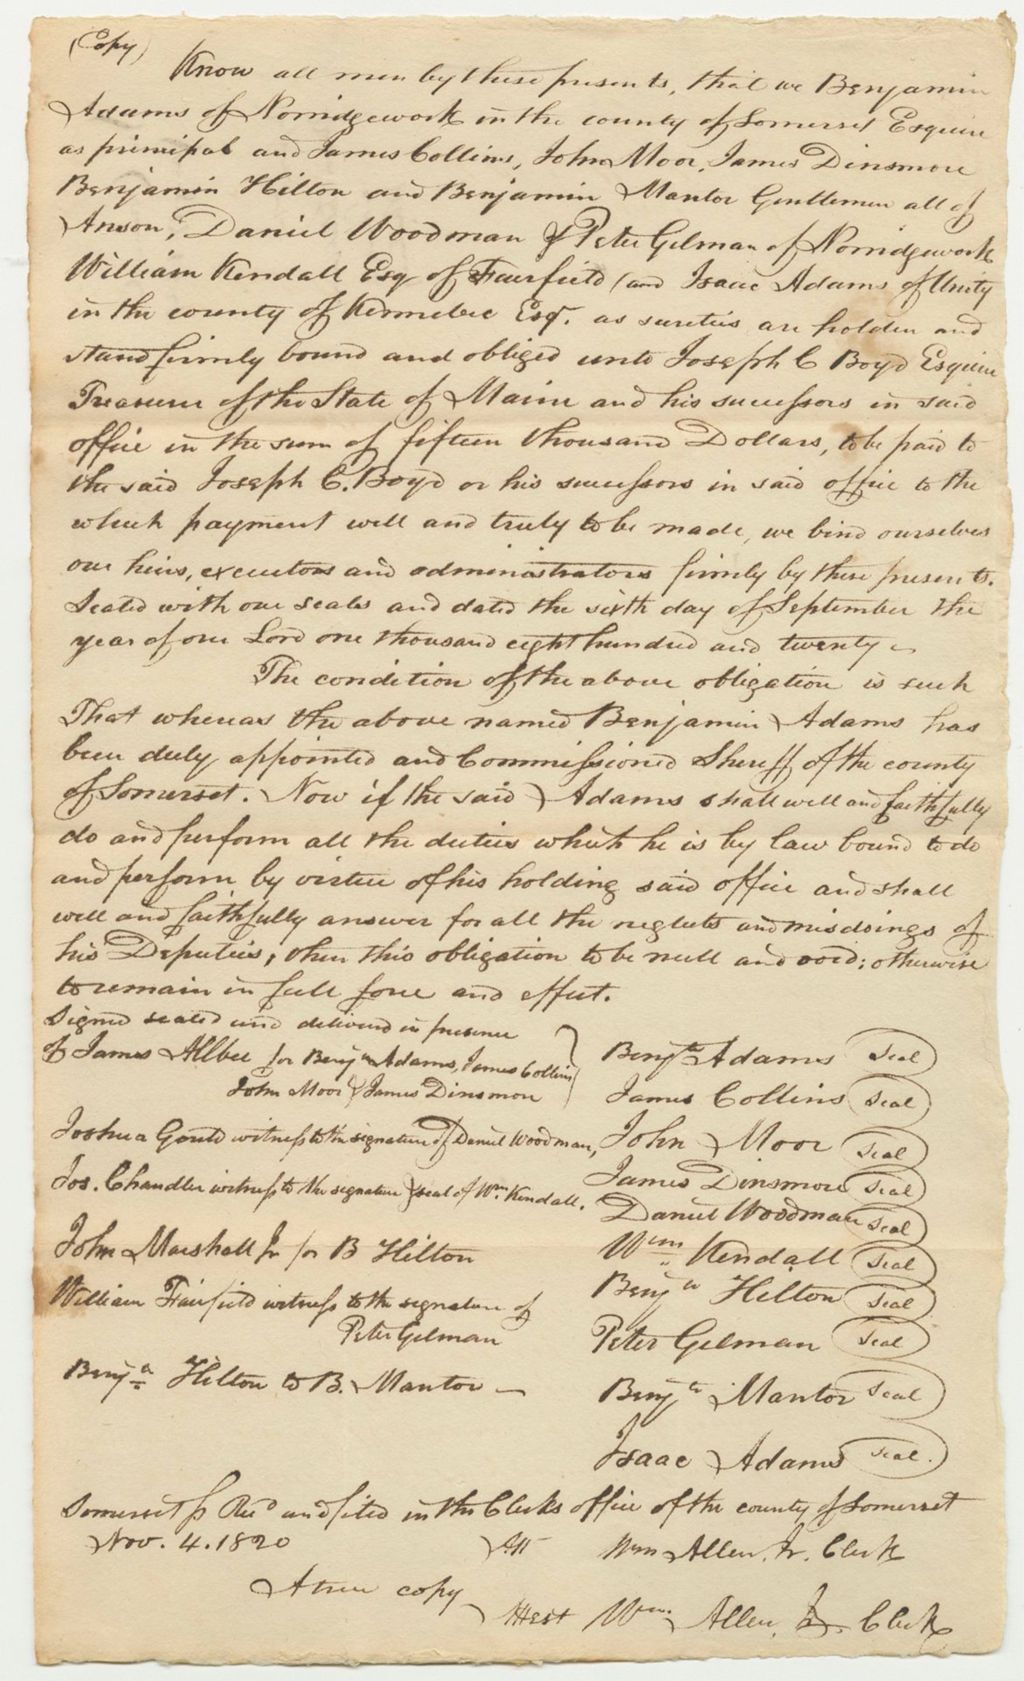 (Copy)
Know all men by these presents, that we Benjamin
Adams of Norridgework in the county of Somerset Esquire
as principal and James Collins, John Moor, James Dinsmore
Benjamin Hilton and Benjamin Mantor Gentlemen all of
Anson, Daniel Woodman & Peter Gilman of Norridgework
William Kendall Esq of Fairfield and Isaac Adams of Unity
in the county of Kennebec Esq. as sureties are holden and
stand firmly bound and obliged unto Joseph C Boyd Esquire
Treasurer of the State of Maine and his successors in said
office in the sum of fifteen thousand Dollars, to be paid to
the said Joseph C. Boyd or his successors in said office to the
which payment well and truly to be made, we bind ourselves
our heirs, executors and administrators firmly by these presents.
Sealed with our seals and dated the sixth day of September the
year of our Lord one thousand eight hundred and twenty
The condition of the above obligation is such
That whereas the above named Benjamin Adams has
been duly appointed and Commissioned Sheriff of the county
of Somerset. Now if the said Adams shall well and faithfully
do and perform all the duties which he is by law bound to do
and perform by virtue of his holding said office and shall
well and faithfully answer for all the neglects and misdoings of
his Deputies, then this obligation to be null and void; otherwise
to remain in full force and effect.
Signed sealed and delivered in presence
of James Allbee for Benjn Adams, James Collins
John Moor & James Dinsmore
Joshua Gould witness to the signature of Daniel Woodman,
Jos. Chandler witness to the signature & seal of Wm Kendall.
John Marshall Jr for B Hilton
William Fairfield witness to the signature of
Peter Gilman
Benja Hilton to B. Mantor
Benjn Adams Seal
James Collins Seal
John Moor Seal
James Dinsmore Seal
Daniel Woodman Seal
Wm Kendall Seal
Benja Hilton Seal
Peter Gilman Seal
Benjn Mantor Seal
Isaac Adams Seal.
Somerset ss Recd and filed in the Clerks office of the county of Somerset
Nov. 4. 1820 Att Wm Allen, Jr. Clerk
A true copy
Attest Wm. Allen, Jr. Clerk